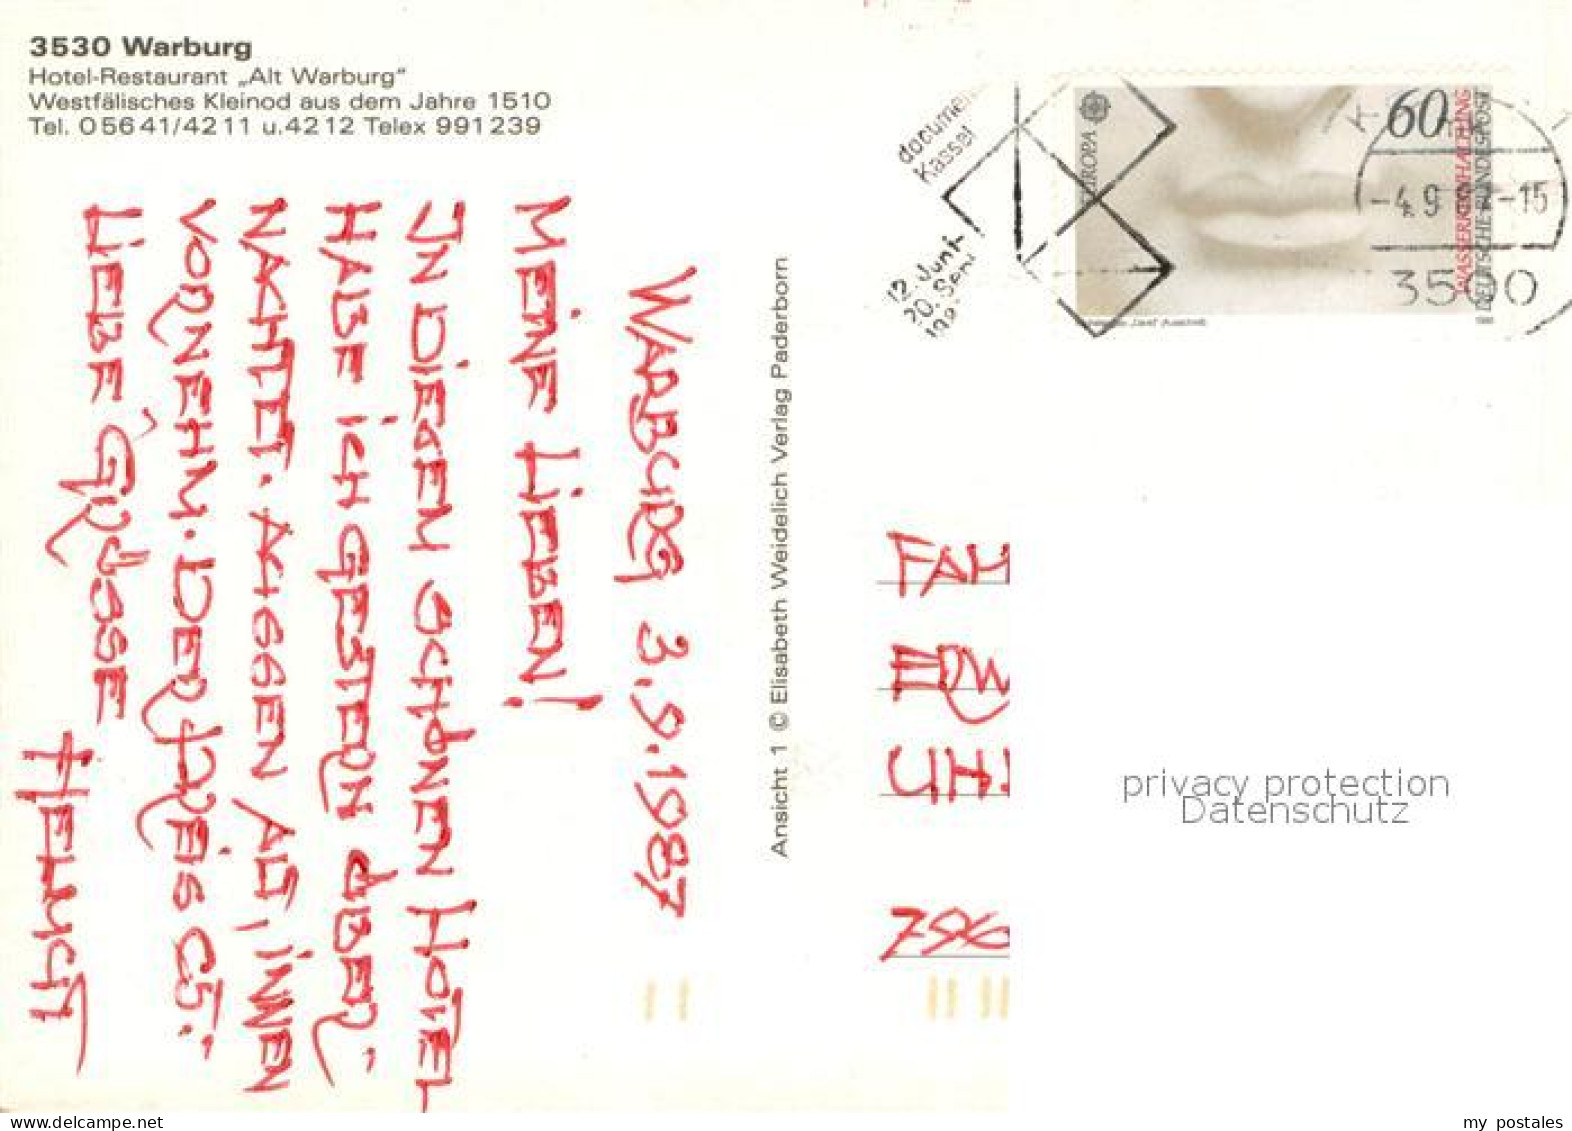 3530 Warburg
Hotel-Restaurant „Alt Warburg"
Westfälisches Kleinod aus dem Jahre 1510
Tel. 05641/4211 u. 4212 Telex 991239
WARBURG 3.9.1987
MEINE LIEBEN!
IN DIESEM SCHÖNEN HOTEL
HABE ICH GESTERN ÜBER-
NACHTET. AUSSEN ALT, INNEN
VORNEHM. DER PREIS 65.-
LIEBE GRÜSSE
HELMUT
Ansicht 1 © Elisabeth Weidelich Verlag Paderborn
documen
Kassel
12. Juni
20. Sep
198
EUROPA
60
WASSERREINHALTUNG
DEUTSCHE BUNDESPOST
-4.9
-15
3500
FAM
796
privacy protection
Datenschutz
www.delcampe.net
my_postales